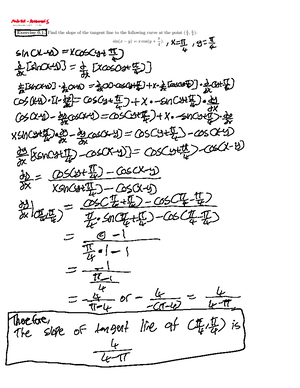 Exercise 6.1. Find the slope of the tangent line to the following curve at the point (π/4, π/4).
sin(x − y) = x cos(y + π/4) , x=π/4 , y=π/4
sin(x-y) = x cos(y+π/4)
d/dx [sin(x-y)] = d/dx [x cos(y+π/4)]
cos(x-y)·[1-dy/dx] = cos(y+π/4) + x·-sin(y+π/4)·dy/dx
cos(x-y) - dy/dx cos(x-y) = cos(y+π/4) + x·-sin(y+π/4)·dy/dx
x sin(y+π/4)·dy/dx - dy/dx cos(x-y) = cos(y+π/4) - cos(x-y)
dy/dx [x sin(y+π/4) - cos(x-y)] = cos(y+π/4) - cos(x-y)
dy/dx = cos(y+π/4) - cos(x-y) / x sin(y+π/4) - cos(x-y)
dy/dx |(π/4, π/4) = cos(π/4+π/4) - cos(π/4-π/4) / π/4 · sin(π/4+π/4) - cos(π/4-π/4)
= 0 - 1 / π/4 · 1 - 1
= -1 / π/4 - 1
= -4/π-4 or -4/-(π-4) = 4/4-π
Therefore,
The slope of tangent line at (π/4, π/4) is
4/4-π